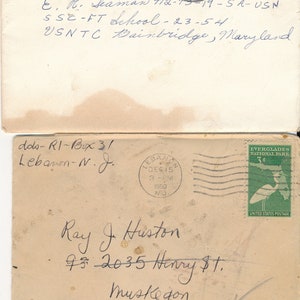 E. N. Seaman 112-75-19-SR-USN
SSC-FT School-23-54
USNTC Bainbridge, Maryland
dds-R1-Box 31
Lebanon-N. J.
LEBANON
DEC 15
EVERGLADES
NATIONAL PARK
3¢
UNITED STATES POSTAGE
Ray J Huston
2035 Henry St.
Muskegon